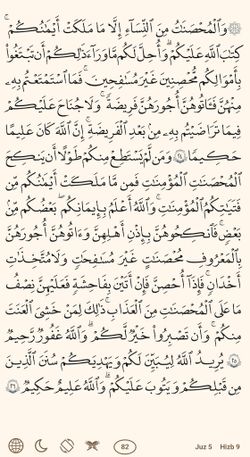 ۞ وَٱلْمُحْصَنَٰتُ مِنَ ٱلنِّسَآءِ إِلَّا مَا مَلَكَتْ أَيْمَٰنُكُمْ ۖ
كِتَٰبَ ٱللَّهِ عَلَيْكُمْ ۚ وَأُحِلَّ لَكُم مَّا وَرَآءَ ذَٰلِكُمْ أَن تَبْتَغُوا۟
بِأَمْوَٰلِكُم مُّحْصِنِينَ غَيْرَ مُسَٰفِحِينَ ۚ فَمَا ٱسْتَمْتَعْتُم بِهِۦ
مِنْهُنَّ فَـَٔاتُوهُنَّ أُجُورَهُنَّ فَرِيضَةً ۚ وَلَا جُنَاحَ عَلَيْكُمْ
فِيمَا تَرَٰضَيْتُم بِهِۦ مِنۢ بَعْدِ ٱلْفَرِيضَةِ ۚ إِنَّ ٱللَّهَ كَانَ عَلِيمًا
حَكِيمًا ٢٤ وَمَن لَّمْ يَسْتَطِعْ مِنكُمْ طَوْلًا أَن يَنكِحَ
ٱلْمُحْصَنَٰتِ ٱلْمُؤْمِنَٰتِ فَمِن مَّا مَلَكَتْ أَيْمَٰنُكُم مِّن
فَتَيَٰتِكُمُ ٱلْمُؤْمِنَٰتِ ۚ وَٱللَّهُ أَعْلَمُ بِإِيمَٰنِكُم ۚ بَعْضُكُم مِّنۢ
بَعْضٍ ۚ فَٱنكِحُوهُنَّ بِإِذْنِ أَهْلِهِنَّ وَءَاتُوهُنَّ أُجُورَهُنَّ
بِٱلْمَعْرُوفِ مُحْصَنَٰتٍ غَيْرَ مُسَٰفِحَٰتٍ وَلَا مُتَّخِذَٰتِ
أَخْدَانٍ ۚ فَإِذَآ أُحْصِنَّ فَإِنْ أَتَيْنَ بِفَٰحِشَةٍ فَعَلَيْهِنَّ نِصْفُ
مَا عَلَى ٱلْمُحْصَنَٰتِ مِنَ ٱلْعَذَابِ ۚ ذَٰلِكَ لِمَنْ خَشِىَ ٱلْعَنَتَ
مِنكُمْ ۚ وَأَن تَصْبِرُوا۟ خَيْرٌ لَّكُمْ ۗ وَٱللَّهُ غَفُورٌ رَّحِيمٌ
٢٥ يُرِيدُ ٱللَّهُ لِيُبَيِّنَ لَكُمْ وَيَهْدِيَكُمْ سُنَنَ ٱلَّذِينَ
مِن قَبْلِكُمْ وَيَتُوبَ عَلَيْكُمْ ۗ وَٱللَّهُ عَلِيمٌ حَكِيمٌ ٢٦
82 Juz 5 Hizb 9